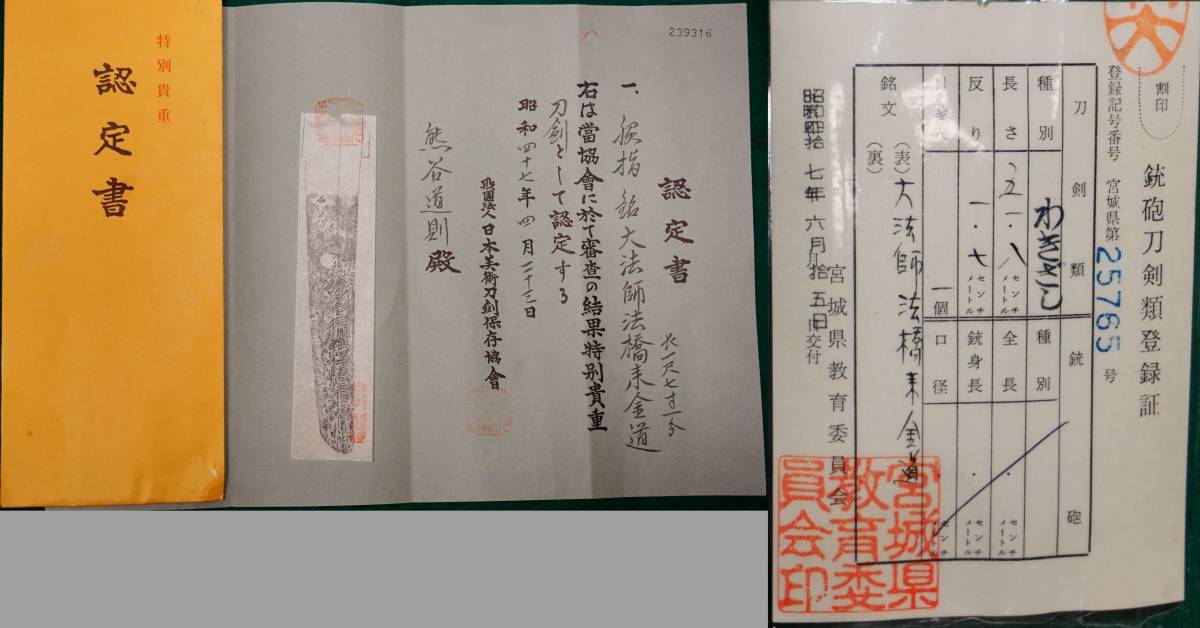 特別貴重
認定書
239316
認定書
長一尺七寸一分
一、脇指 銘大法師法橋来金道
右は當協會に於て審査の結果特別貴重
刀劍として認定する
昭和四十七年四月二十三日
財團法人日本美術刀劍保存協會
熊谷道則殿
銃砲刀剣類登録証
割印
登録記号番号 宮城県第 25765 号
刀剣類
銃砲
種別 わきざし
種別
長さ 五一・八 センチメートル
全長 ・ センチメートル
反り 一・七 センチメートル
銃身長 ・ センチメートル
一個
口径 ・ センチメートル
銘文 (表)大法師法橋来金道
(裏)
昭和四拾七年六月拾五日交付
宮城県教育委員会
宮城県
教育委
員会印